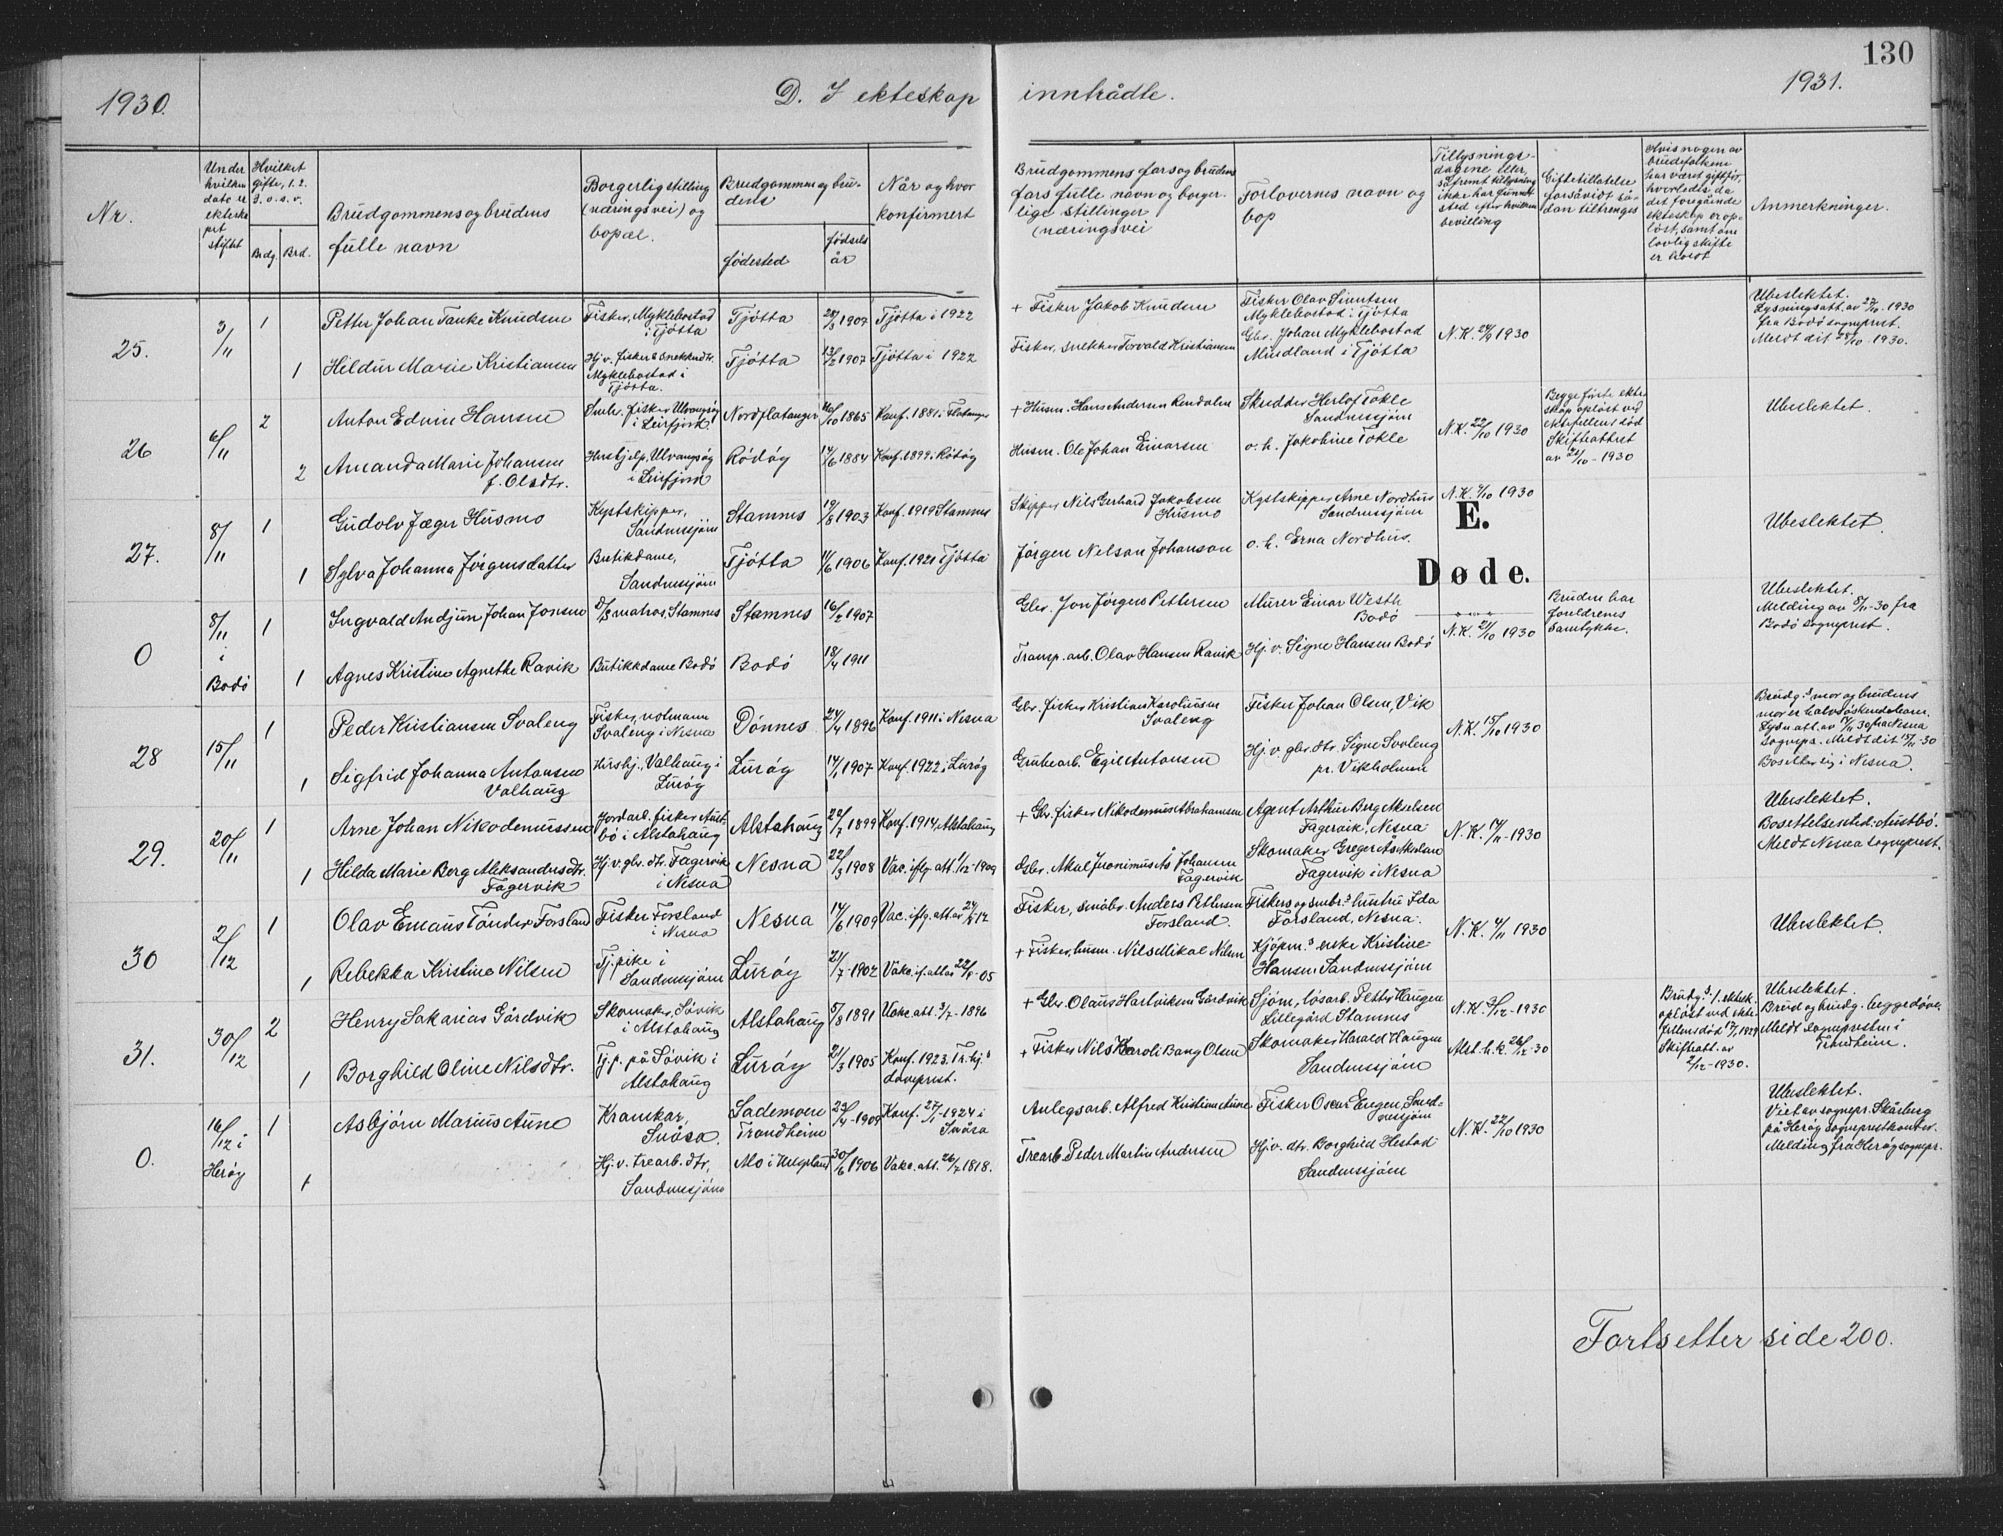 130
1930.
D. I ekteskap inntrådte.
1931.
Nr.
Under
hvilken
dato er
ekteska
pet
stiftet
Hvilket
gifte, 1. 2.
3. o. s. v.
Brdg.
Brd.
Brudgommens og brudens
fulle navn
Borgerlig stilling
(næringsvei) og
bopæl.
Brudgommens og bru-
dens
fødested
fødsels
år
Når og hvor
konfirmert
Brudgommens fars og brudens
fars fulle navn og borger-
lige stillinger
(næringsvei
Forlovernes navn og
bop
Tillysnings-
dagene eller,
såfremt tillysning
ikke har funnet
sted efter hvilken
bevilling
Giftetillatelse
forsåvidt så-
dan tiltrenges
Hvis nogen av
brudefolkene
har været gift før,
hvorledes da
det foregående
ekteskap er op-
løst, samt om
lovlig skifte
er holdt
Anmerkninger.
25.
3/11
1
Petter Johan Tanke Knudsen
Fisker, Myklebostad
i Tjøtta
Tjøtta
28/3 1907
Tjøtta i 1922
+ Fisker Jakob Knudsen
Fisker Olav Sivertsen
Myklebostad i Tjøtta
N.K. 24/9 1930
Ubeslektet.
Lysningsatt. av 27/10 - 1930
fra Bodø sogneprest.
Meldt dit 28/10 - 1930.
1
Hildur Marie Kristiansen
Hj.v. fisker & snekkerdtr.
Myklebostad i
Tjøtta.
Tjøtta
13/2 1907
Tjøtta i 1922
Fisker, snekker Torvald Kristiansen
Gbr. Johan Myklebostad
Mindland i Tjøtta
26
6/11
2
Anton Edvin Hansen
Snekr. fisker Ulvangsøy
i Leirfjord
Nordflatanger
20/10 1865
Konf. 1881 i Flatanger
+ Husm. Hans Andersen Rendalen
Skredder Herlof Tokle
Sandnessjøen
N.K. 22/10 1930
Begge første ekte-
skap opløst ved
ektefellens død
Skifteattest
av 21/10 - 1930
Ubeslektet.
2
Amanda Marie Johansen
f. Olsdtr.
Husbjelp, Ulvangsøy
i Leirfjord
Rødøy
14/6 1884
Konf. 1899 i Rødøy
Husm. Ole Johan Einarsen
o. h. Jakobine Tokle
27.
8/11
1
Gudolv Jæger Husmo
Kystskipper,
Sandnessjøen
Stamnes
19/8 1903
Konf. 1919 Stamnes
Skipper Nils Gerhard Jakobsen
Husmo
Kystskipper Arne Nordhus
Sandnessjøen
N.K. 9/10 1930
E.
Døde.
Ubeslektet.
1
Sylva Johanna Jørgensdatter
Butikdame,
Sandnessjøen
Tjøtta
11/6 1906
Konf. 1921 Tjøtta
Jørgen Nelson Johanson
o. h. Erna Nordhus.
0
8/11
i
Bodø
1
Ingvald Andjun Johan Jonsen
D/S matros, Stamnes
Stamnes
16/2 1907
Gbr. Jon Jørgens Pettersen
Murer Einar Westh
Bodø
N.K. 21/10 1930
Bruden har
foreldrenes
samtykke.
Ubeslektet.
Melding av 8/11-30 fra
Bodø sogneprest.
1
Agnes Kristine Agnethe Ravik
Butikkdame Bodø
Bodø
18/4 1911
Transp. arb. Olav Hansen Ravik
Hj.v. Signe Hansen Bodø
28
15/11
1
Peder Kristiansen Svaleng
Fisker, notmann
Svaleng i Nesna
Dønnes
24/4 1896
Konf. 1911 i Nesna
Gbr. fisker Kristian Karoliussen
Svaleng
Fisker Johan Olsen, Vik
N.K. 15/10 1930
Brudg.s mor og brudens
mor er halvsøskendebarn.
Lysn. att. av 17/11 30 fra Nesna
sognepr. Meldt dit 15/11-30
Bosetter sig i Nesna.
1
Sigfrid Johanna Antonsen
Valhaug
Hushj., Valhaug i
Lurøy
Lurøy
14/1 1907
Konf. 1922 i Lurøy
Grubearb. Egil Antonsen
Hj.v. gbr. dtr. Signe Svaleng
pr. Vikholmen
29.
20/11
1
Arne Johan Nikodemussen
Jordarb. fisker Aust-
bø i Alstahaug
Alstahaug
22/7 1899
Konf. 1914, Alstahaug
+ Gbr. fisker Nikodemus Abrahamsen
Agent Arthur Berg Akselsen
Fagervik, Nesna
N.K. 14/11 1930
Ubeslektet.
Bosettelsessted: Austbø.
Meldt Nesna sogneprest.
1
Hilda Marie Berg Aleksandersdtr.
Fagervik
Hj.v. gbr. dtr. Fagervik
i Nesna
Nesna
22/3 1908
Vac. iflg. att. 1/12 - 1909
Gbr. Aksel Jeronimus Ås Johansen
Fagervik
Skomaker Greger Ås Akselsen
Fagervik i Nesna
30
2/12
1
Olav Emaus Tønder Forsland
Fisker Forsland
i Nesna
Nesna
14/6 1909
Vac. iflg. att. av 24/8-12
Fisker, småbr. Anders Pettersen
Forsland.
Fiskers og småbr.s hustru Ida
Forsland, Nesna.
N.K. 4/11 1930
Ubeslektet.
1
Rebekka Kristine Nilsen
Tj. pike i
Sandnessjøen
Lurøy
21/7 - 1902
Vakc. if. att. av 22/8 - 05
+ Fisker, husm. Nils Mikal Nilsen
Kjøpm.s enke Kristine
Hansen Sandnessjøen
31.
30/12
2
Henry Sakarias Gårdvik
Skomaker, Søvik
i Alstahaug
Alstahaug
5/8 1891
Vakc. att. 3/7 - 1896
+ Gbr. Olaus Hartviksen Gårdvik
Sjøm., løsarb. Petter Haugen
Lillegård Stamnes
N.K. 3/12 - 1930
Alst. h. k. 26/12 - 30
Brudg.s 1. ektesk.
opløst ved ekte-
fellens død 17/1 1929
Skifteatt. av
2/12 - 1930.
Ubeslektet.
Brud og brudg. begge døve.
Meldt sognepresten i
Trondheim.
1
Borghild Oline Nilsdtr.
Tj.p. på Søvik i
Alstahaug
Lurøy
21/3 1905
Konf. 1923. Tr.hj.s
døveprest.
+ Fisker Nils Karoli Bang Olsen
Skomaker Harald Haugen
Sandnessjøen
0.
16/12 i
Herøy
1
Asbjørn Marius Aune
Kramkar,
Snåsa.
Lademoen
Trondheim
23/4 - 1909
Konf. 27/7 - 1924 i
Snåsa
Anlegsarb. Alfred Kristian Aune
Fisker Oscar Engen, Sand-
nessjøen
N.K. 22/10 1930
Ubeslektet.
Viet av sognepr. Skårberg
på Herøy sogneprestkontor.
Melding fra Herøy sognepr.
1
Hj.v. trearb. dtr,
Sandnessjøen
Mo i Helgeland
30/6 1906
Vakc. att. 26/7 1818.
Trearb. Peder Martin Andersen
Hj.v. dtr. Borghild Hestad
Sandnessjøen
Fortsetter side 200.